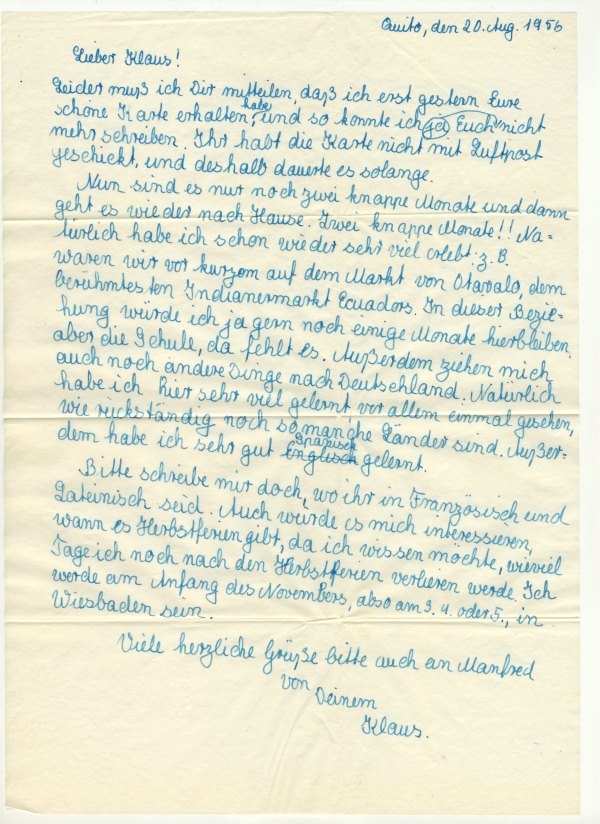 Quito, den 20. Aug. 1956
Lieber Klaus!
Leider muß ich Dir mitteilen, daß ich erst gestern Eure
schöne Karte erhalten habe, und so konnte ich ja Euch nicht
mehr schreiben. Ihr habt die Karte nicht mit Luftpost
geschickt, und deshalb dauerte es solange.
Nun sind es nur noch zwei knappe Monate und dann
geht es wieder nach Hause. Zwei knappe Monate!! Na=
türlich habe ich schon wieder sehr viel erlebt. z. B.
waren wir vor kurzem auf dem Markt von Otavalo, dem
berühmtesten Indianermarkt Ecuadors. In dieser Bezie=
hung würde ich ja gern noch einige Monate hierbleiben,
aber die Schule, da fehlt es. Außerdem ziehen mich
auch noch andere Dinge nach Deutschland. Natürlich
habe ich hier sehr viel gelernt vor allem einmal gesehen,
wie rückständig noch so manche Länder sind. Außer-
dem habe ich sehr gut Englisch Spanisch gelernt.
Bitte schreibe mir doch, wo ihr in Französisch und
Lateinisch seid. Auch würde es mich interessieren,
wann es Herbstferien gibt, da ich wissen möchte, wieviel
Tage ich noch nach den Herbstferien verlieren werde. Ich
werde am Anfang des Novembers, also am 3. 4. oder 5., in
Wiesbaden sein.
Viele herzliche Grüße bitte auch an Manfred
von Deinem
Klaus.